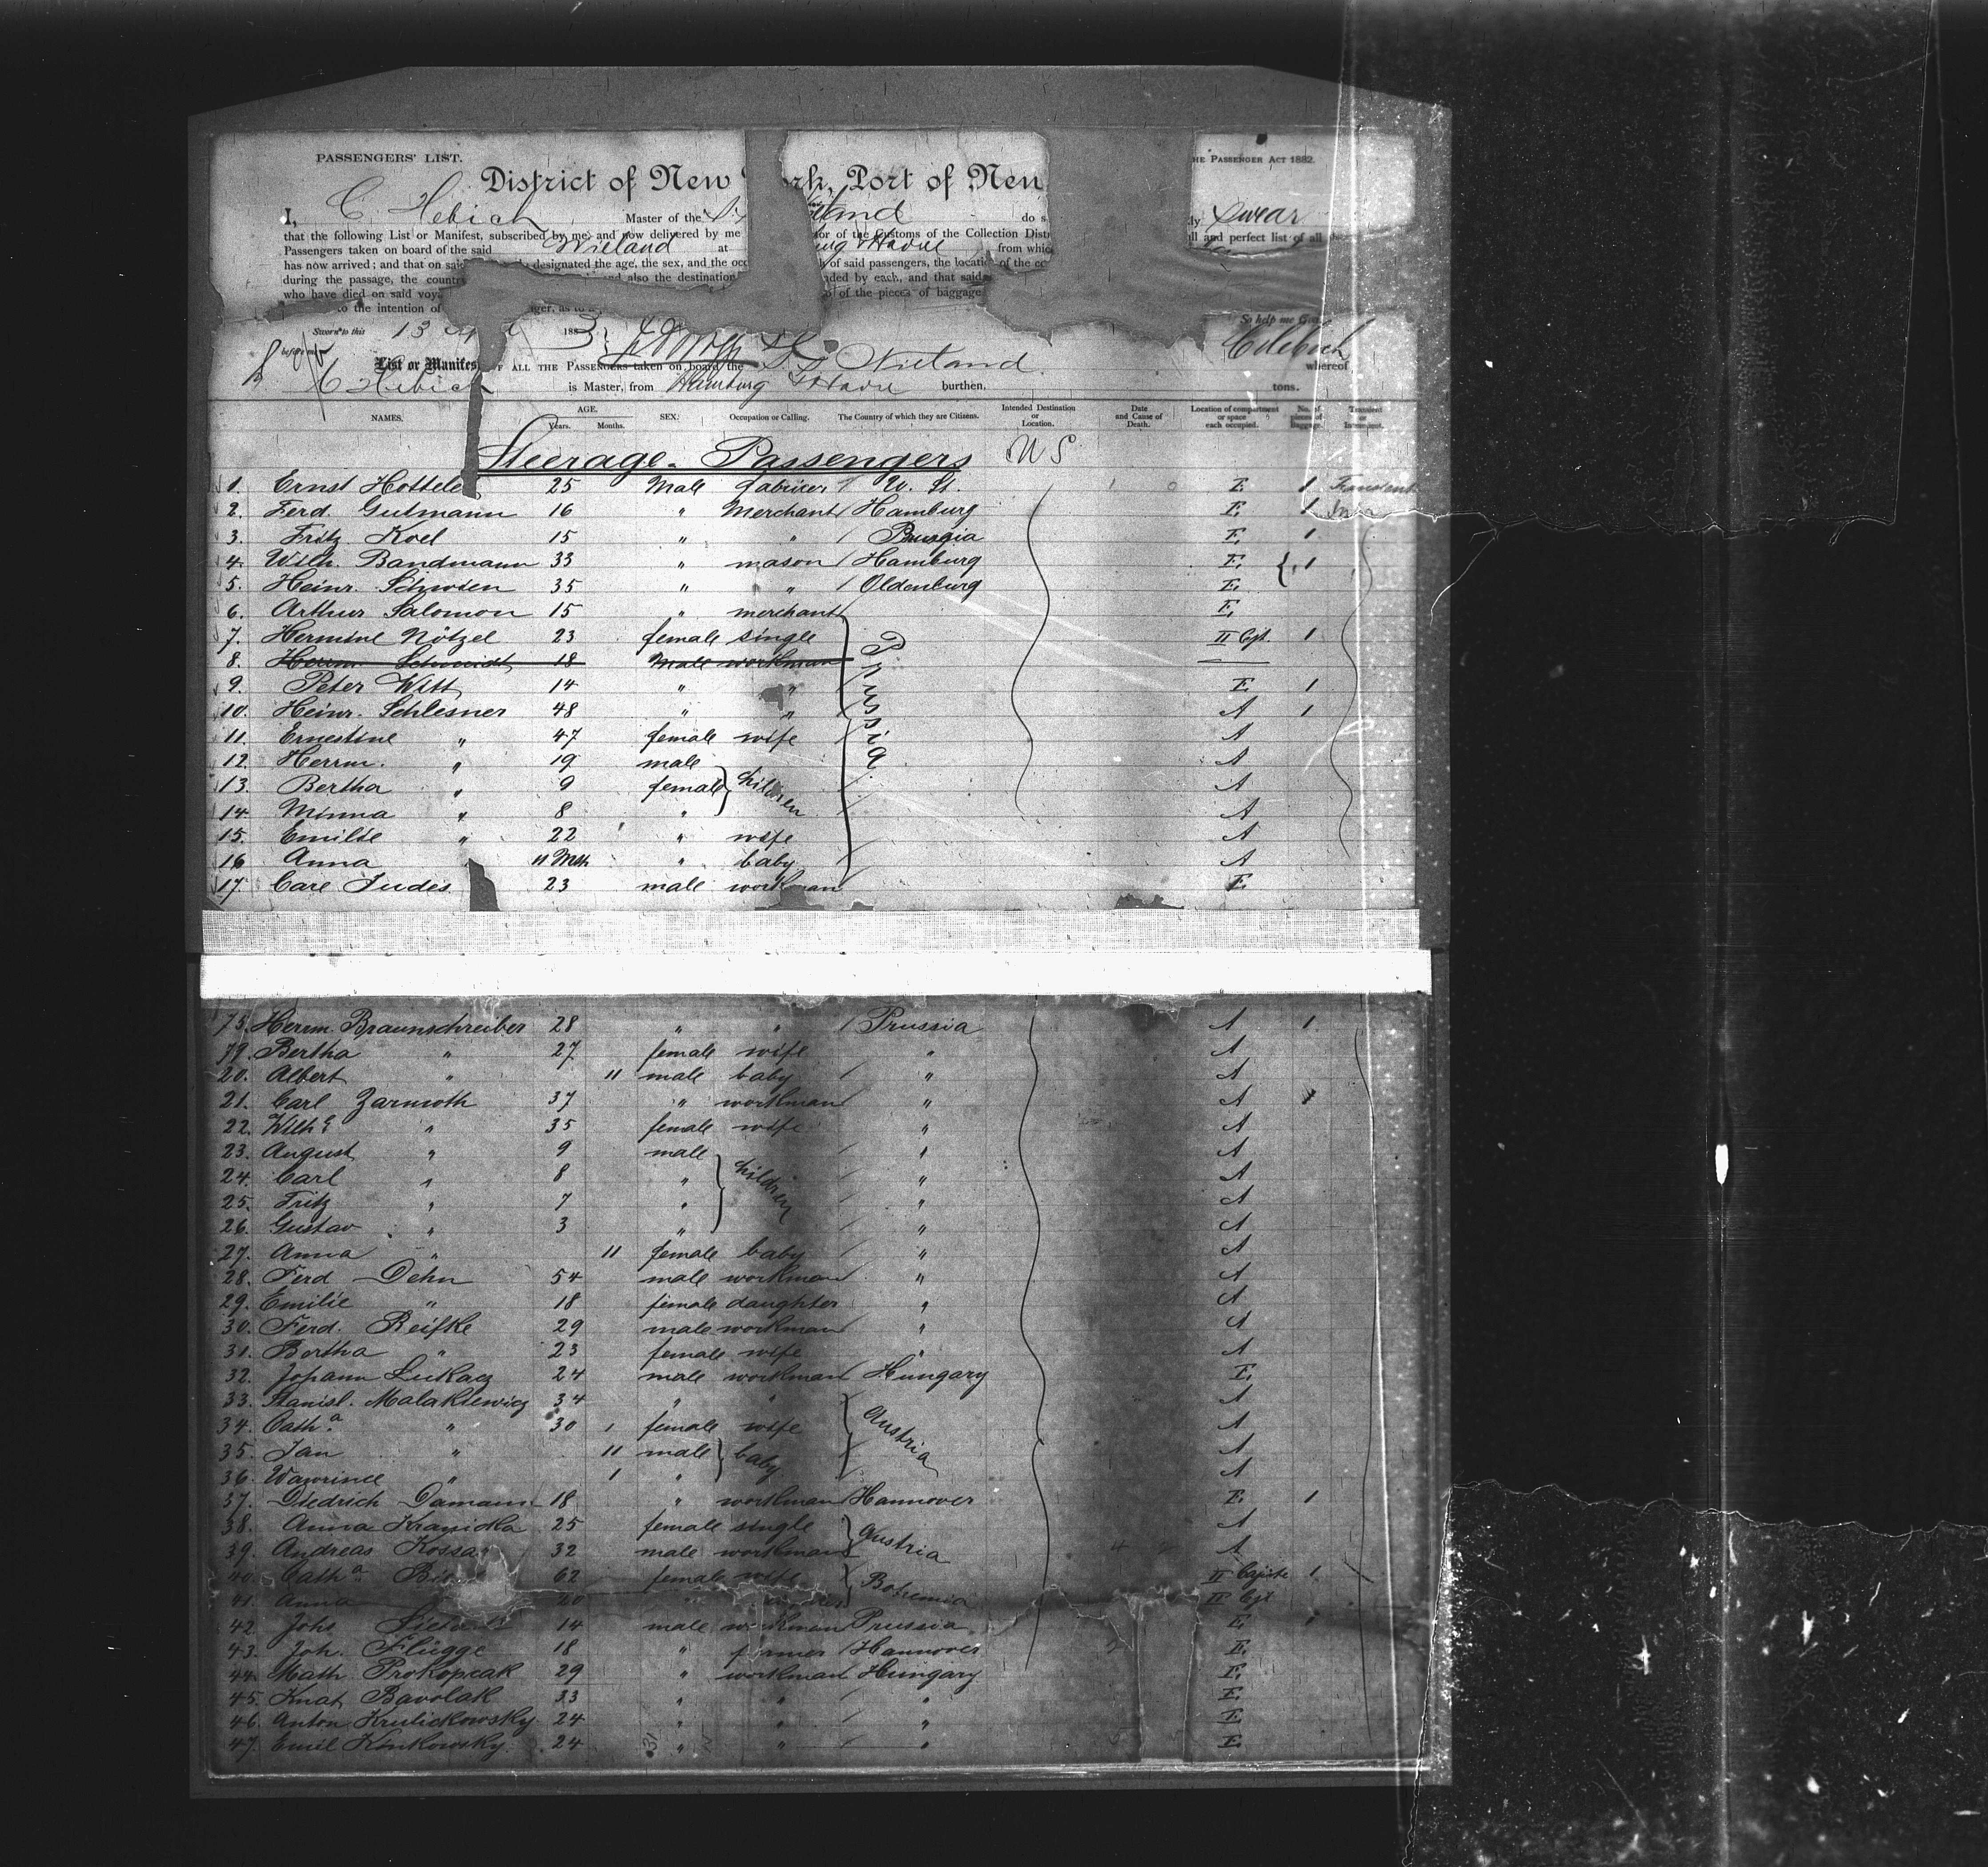 PASSENGERS' LIST. HE PASSENGER ACT 1882.
District of New rk, Port of New
I, C. Hebich Master of the land do s ly swear
that the following List or Manifest, subscribed by me, and now delivered by me or of the Customs of the Collection Distr ll and perfect list of all
Passengers taken on board of the said Wieland at urg Havre from which
has now arrived; and that on said designated the age, the sex, and the occ of said passengers, the location of the co
during the passage, the countr also the destination ded by each, and that said
who have died on said voya of the pieces of baggage
to the intention of ger, as to
Sworn to this 13 1883. So help me God
before me C Hebich
List or Manifest OF ALL THE PASSENGERS taken on board the S. S. Wieland. whereof
C Hebich is Master, from Hamburg & Havre burthen, tons.
NAMES. AGE. Years. Months. SEX. Occupation or Calling. The Country of which they are Citizens. Intended Destination or Location. Date and Cause of Death. Location of compartment or space each occupied. No. of pieces of Baggage. Transient or Immigrant.
Steerage-Passengers U S
1. Ernst Hottele 25 Male U. St. E 1 Transient
2. Ferd. Gutmann 16 " Merchant Hamburg E. 1
3. Fritz Koel 15 " " E. 1
4. Wilh. Bandmann 33 " mason Hamburg E. 1
5. Heinr. 35 " " Oldenburg E.
6. Arthur Salomon 15 " merchant E.
7. Hermine Nötzel 23 female single II Cajt 1
8. Herrm Schmidt 18 Male workman
Prussia
9. Peter Witt 14 " " E. 1
10. Heinr. Schlesner 48 " " A 1
11. Ernestine " 47 female wife A
12. Herrm. " 19 male A
13. Bertha " 9 female children A
14. Minna " 8 " A
15. Emilie " 22 " wife A
16 Anna 11 Mth " baby A
17. Carl Judes 23 male workman E.
Herrm. Braunschreiber 28 " " Prussia A 1
19. Bertha " 27 female wife " A
20. Albert " 11 male baby " A
21. Carl Zarmoth 37 " workman " A 1
22. Wilhe " 35 female wife " A
23. August " 9 male " A
24. Carl " 8 " children " A
25. Fritz " 7 " " A
26. Gustav " 3 " " A
27. Anna " 11 female baby " A
28. Ferd Dehn 54 male workman " A
29. Emilie " 18 female daughter " A
30. Ferd. Reifke 29 male workman " A
31. Bertha " 23 female wife " A
32. Johann Lukacz 24 male workman Hungary E.
33. Stanisl. Malakiewicz 34 " " A
34. Catha. " 30 female wife Austria A
35. Jan " 11 male baby A
36. Wawrince " 1 " A
37. Diedrich Damann 18 " workman Hannover E. 1
38. Anna Kranicka 25 female single Austria A
39. Andreas Kossa 32 male workman A
40. Catha. 62 female wife Bohemia II Cajüte 1
41. Anna 20 II Cjt
42. Johs 14 male workman Prussia E. 1
43. Joh. Flügge 18 " farmer Hannover E.
44. Math. Prokopcak 29 " workman Hungary E.
45. Knat Bavolak 33 " " " E.
46. Anton Krulickowsky 24 " " " E.
47. Emil Kinkowsky. 24 " " " E.